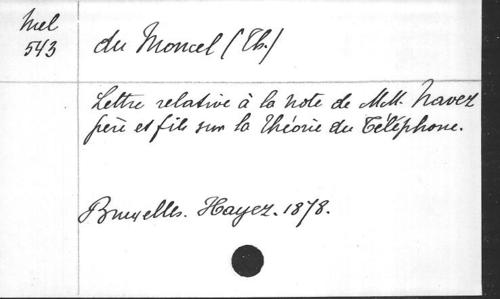 Mel
543
du Moncel (Th.)
Lettre relative à la note de M.M. Navez
père et fils sur la théorie du Téléphone.
Bruxelles. Hayez. 1878.